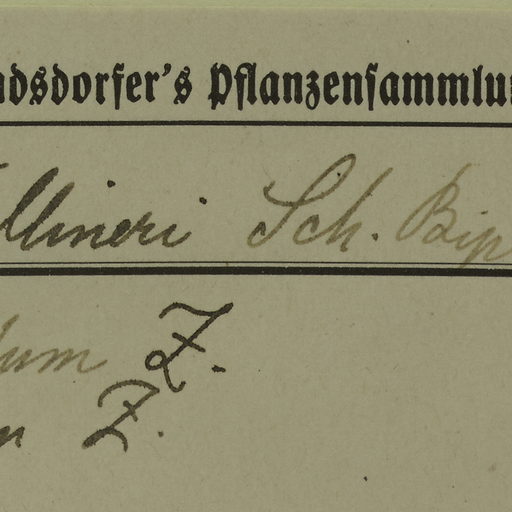 ndsdorfer's Pflanzensammlun
llineri Sch. Bip
um Z.
n Z.